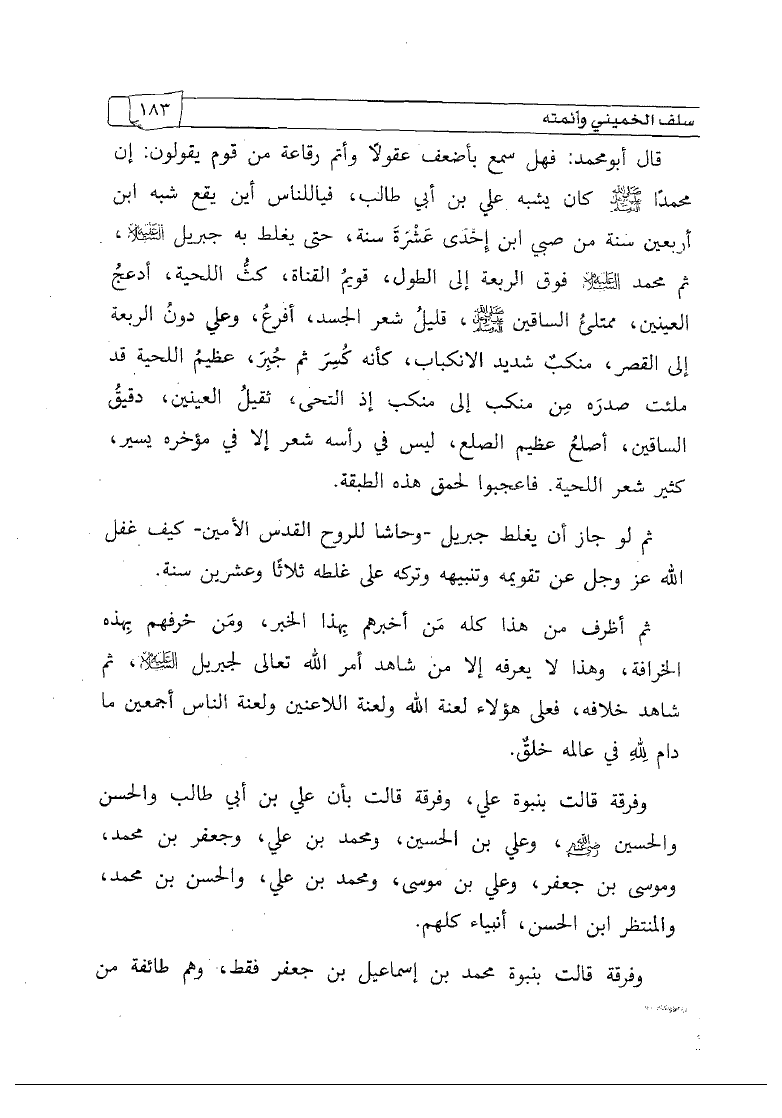 سلف الخميني وأئمته
١٨٣
قال أبومحمد: فهل سمع بأضعف عقولًا وأتم رقاعة من قوم يقولون: إن
محمدًا ﷺ كان يشبه علي بن أبي طالب، فياللناس أين يقع شبه ابن
أربعين سنة من صبي ابن إِحْدَى عَشْرَةَ سنة، حتى يغلط به جبريل عليه السلام،
ثم محمد عليه السلام فوق الربعة إلى الطول، قويمُ القناة، كثُّ اللحية، أدعجُ
العينين، ممتلئُ الساقين ﷺ، قليلُ شعر الجسد، أفرعُ، وعلي دونُ الربعة
إلى القصر، منكبٌ شديد الانكباب، كأنه كُسِرَ ثم جُبِرَ، عظيمُ اللحية قد
ملئت صدرَه مِن منكب إلى منكب إذ التحى، ثقيلُ العينين، دقيقُ
الساقين، أصلعُ عظيم الصلع، ليس في رأسه شعر إلا في مؤخره يسير،
كثير شعر اللحية. فاعجبوا لحمق هذه الطبقة.
ثم لو جاز أن يغلط جبريل -وحاشا للروح القدس الأمين- كيف غفل
الله عز وجل عن تقويمه وتنبيهه وتركه على غلطه ثلاثًا وعشرين سنة.
ثم أظرف من هذا كله مَن أخبرهم بِهذا الخبر، ومَن خرفهم بِهذه
الخرافة، وهذا لا يعرفه إلا من شاهد أمر الله تعالى لجبريل عليه السلام، ثم
شاهد خلافه، فعلى هؤلاء لعنة الله ولعنة اللاعنين ولعنة الناس أجمعين ما
دام لِلهِ في عالمه خلقٌ.
وفرقة قالت بنبوة علي، وفرقة قالت بأن علي بن أبي طالب والحسن
والحسين رضي الله عنهم، وعلي بن الحسين، ومحمد بن علي، وجعفر بن محمد،
وموسى بن جعفر، وعلي بن موسى، ومحمد بن علي، والحسن بن محمد،
والمنتظر ابن الحسن، أنبياء كلهم.
وفرقة قالت بنبوة محمد بن إسماعيل بن جعفر فقط، وهم طائفة من